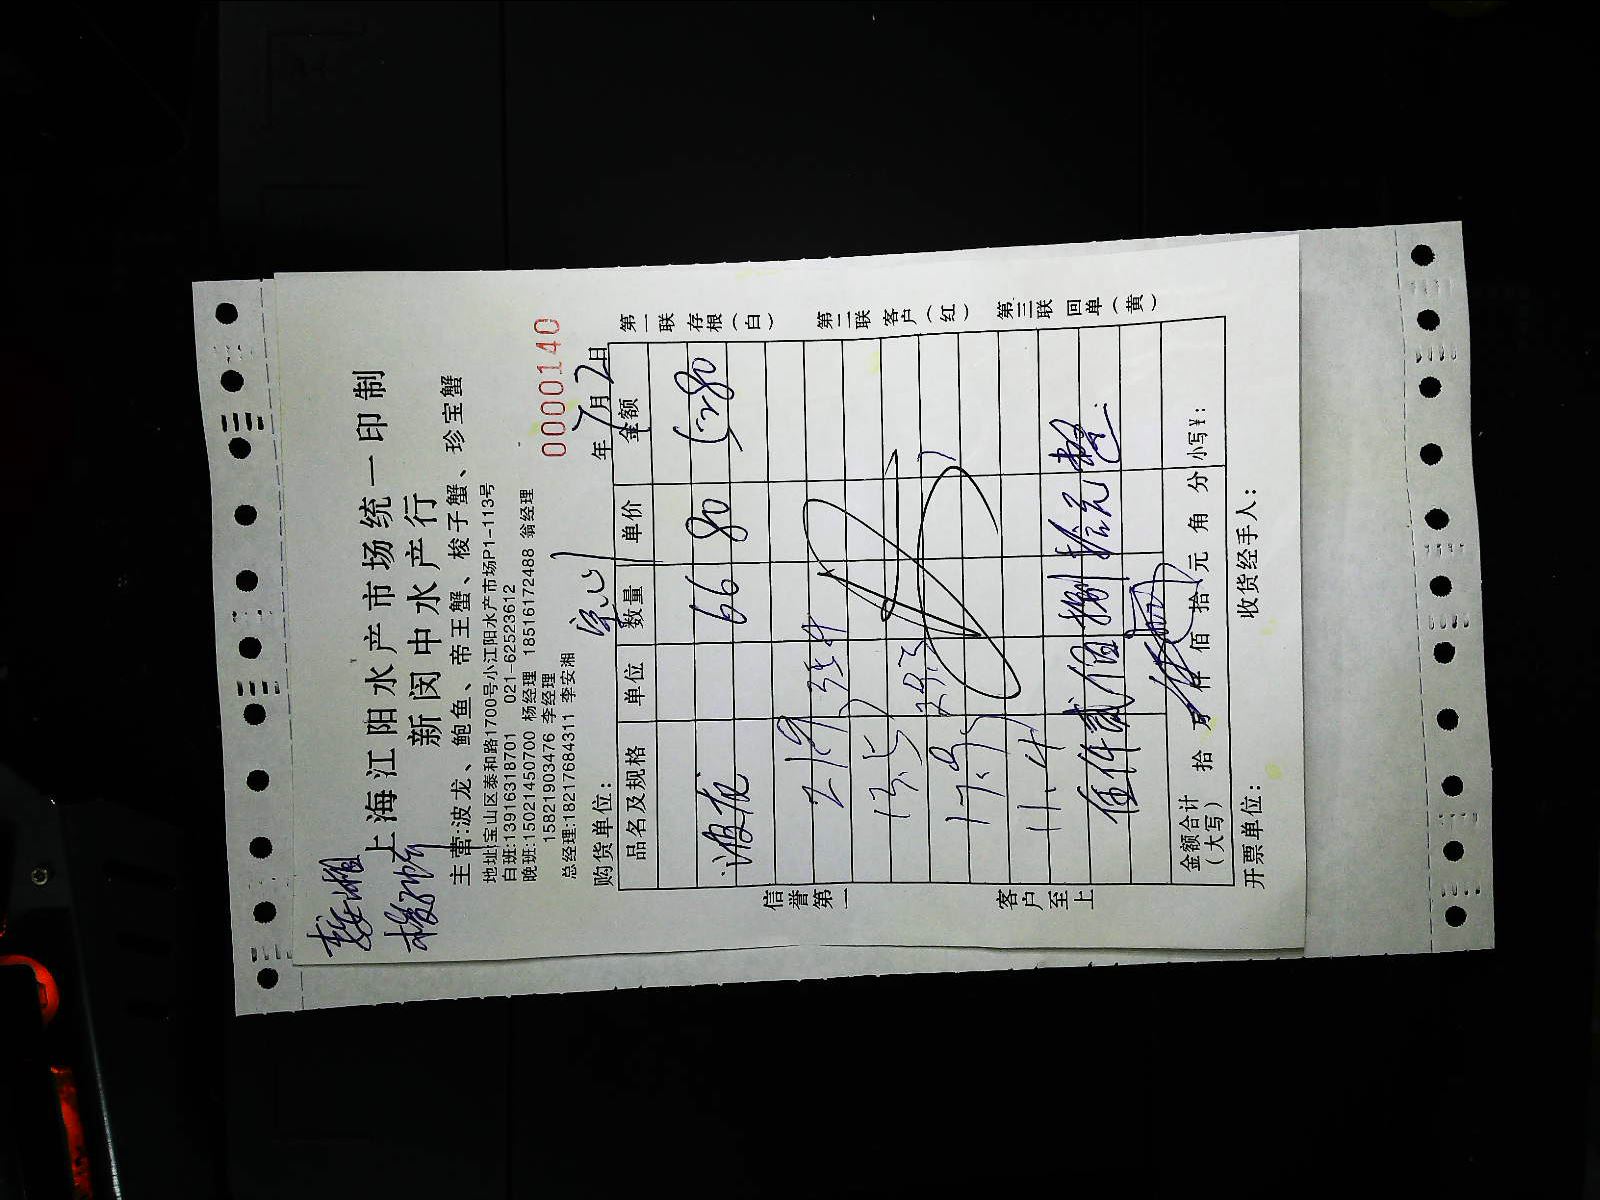 上海江阳水产市场统一印制
新闵中水产行
主营:波龙、鲍鱼、帝王蟹、梭子蟹、珍宝蟹
地址:宝山区泰和路1700号小江阳水产市场P1-113号
白班:13916318701 021-62523612
晚班:15021450700 杨经理 18516172488 翁经理
15821903476 李经理
总经理:18217684311 李安湘
0000140
购货单位: 宝山 年7月2日
品名及规格 单位 数量 单价 金额
波龙 66 80 5280
219
354
13.5
17.9
11.4
伍仟贰佰捌拾元整
金额合计
(大写) 拾 万 仟 佰 拾 元 角 分 小写¥:
开票单位: 收货经手人:
信誉第一
客户至上
第一联存根(白)
第二联客户(红)
第三联回单(黄)